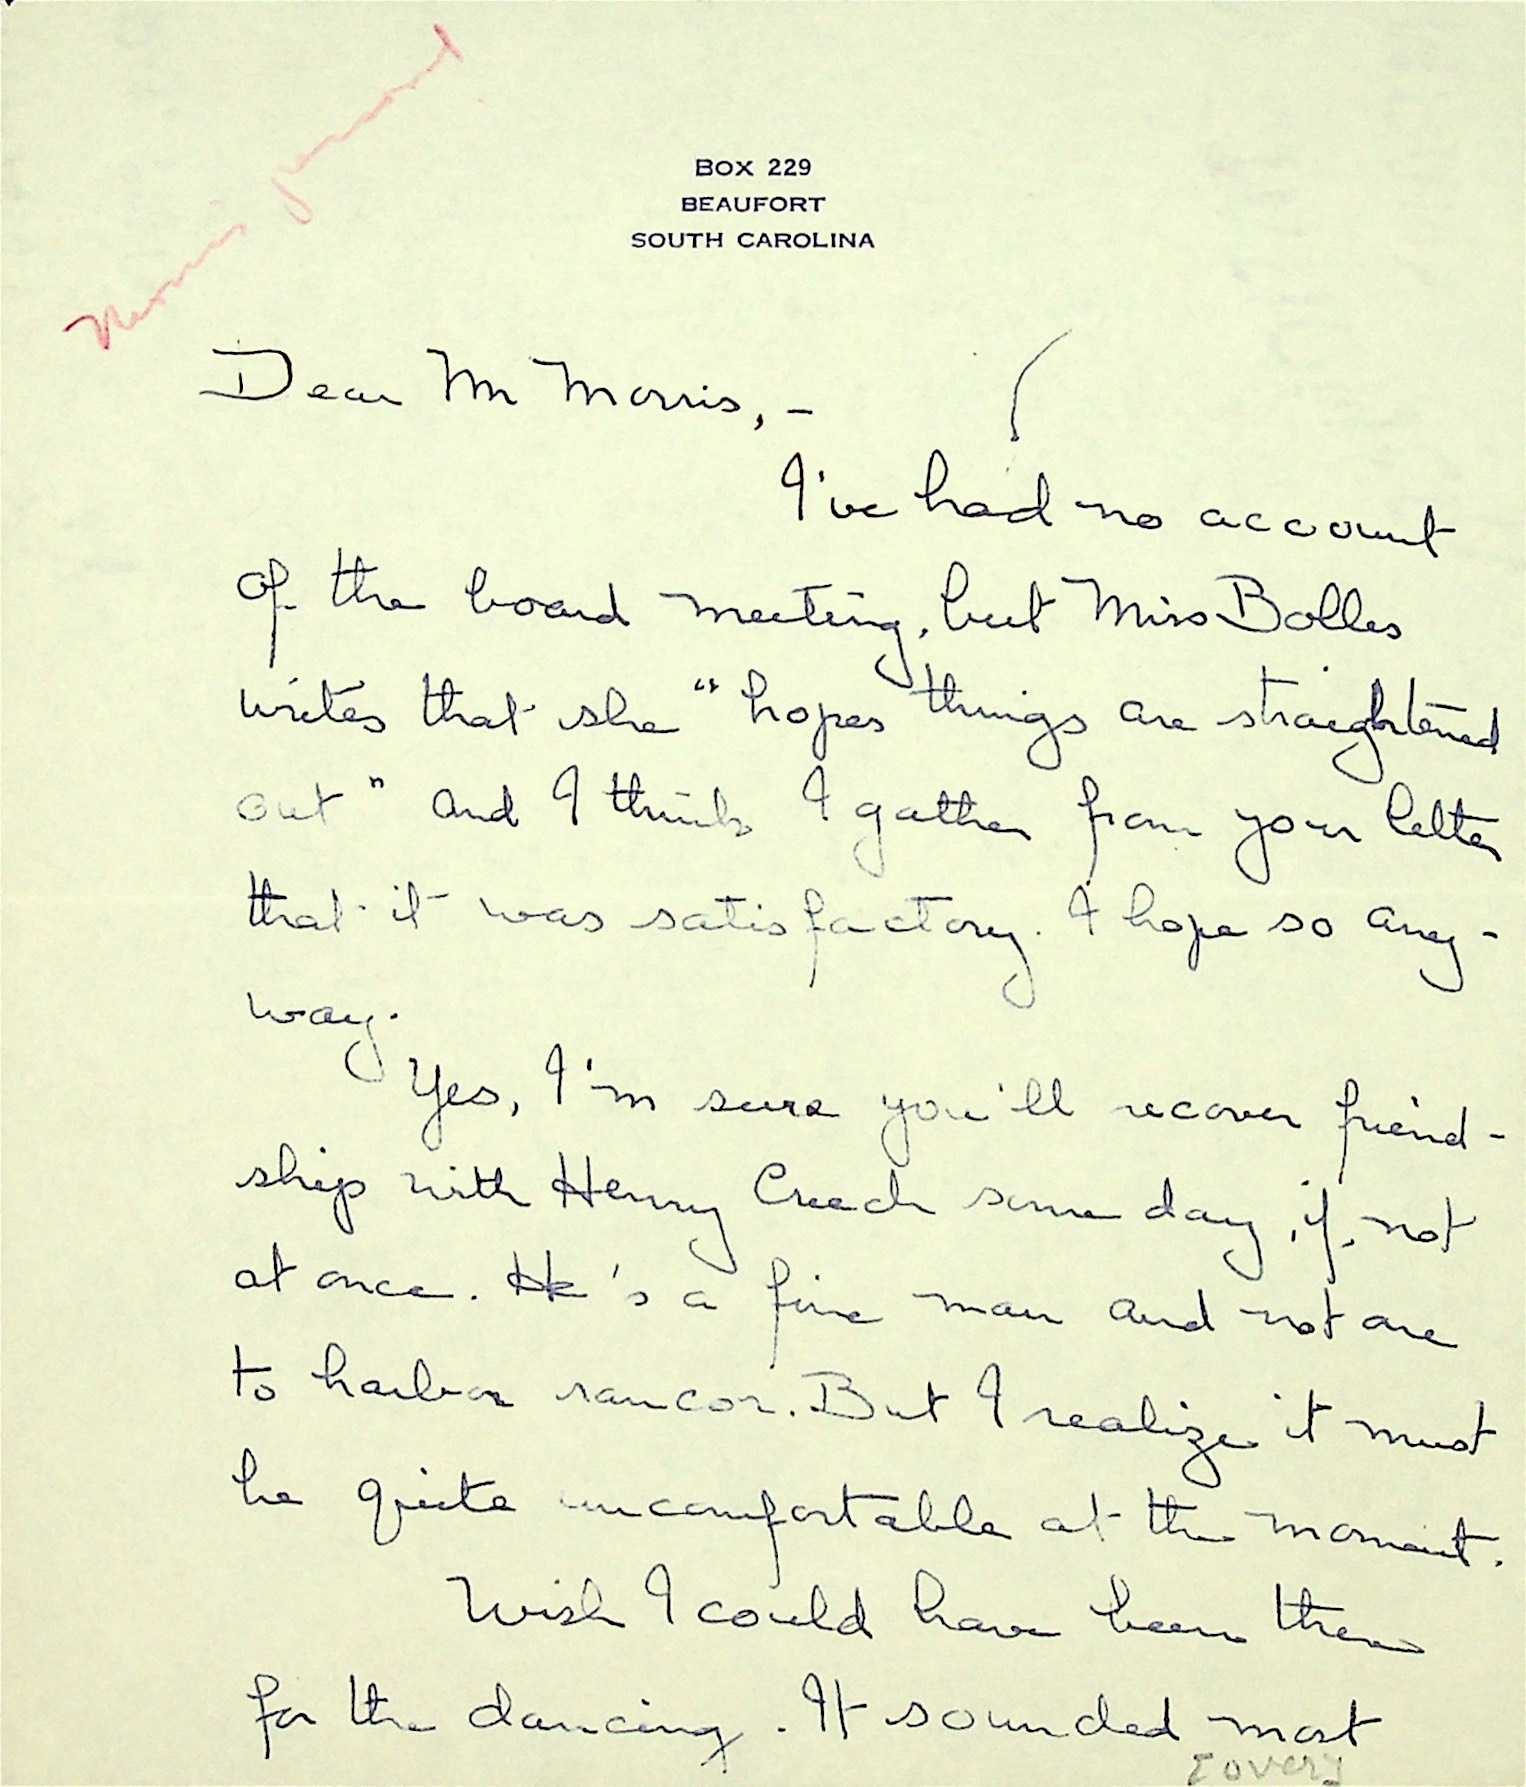 Morris personal
BOX 229
BEAUFORT
SOUTH CAROLINA
Dear Mr Morris, -
I've had no account
of the board meeting, but Miss Bolles
writes that she "hopes things are straightened
out" and I think I gather from your letter
that it was satisfactory. I hope so any-
way.
Yes, I'm sure you'll recover friend-
ship with Henry Creech some day, if not
at once. He's a fine man and not one
to harbor rancor. But I realize it must
be quite uncomfortable at the moment.
Wish I could have been there
for the dancing. It sounded most
[over]